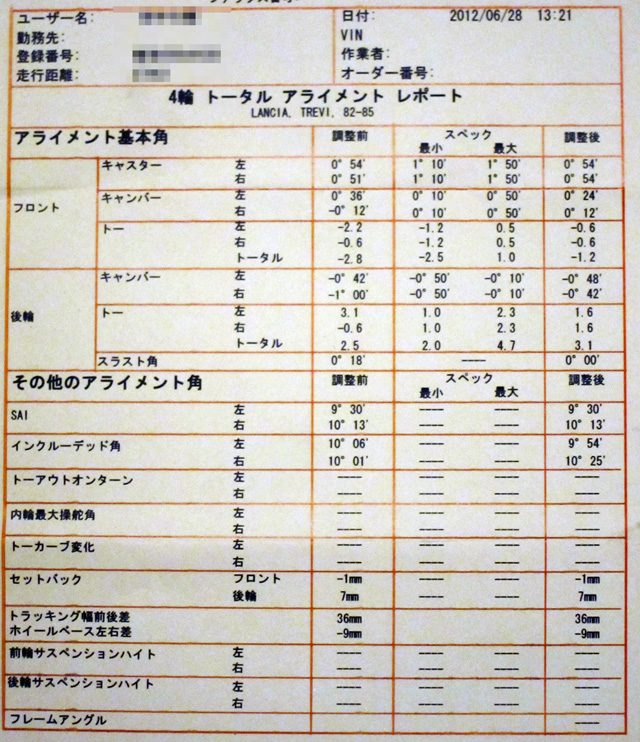 ユーザー名: 日付: 2012/06/28 13:21
勤務先: VIN
登録番号: 作業者:
走行距離: オーダー番号:
4輪 トータル アライメント レポート
LANCIA, TREVI, 82-85
アライメント基本角 調整前 スペック 調整後
最小 最大
フロント キャスター 左 0° 54' 1° 10' 1° 50' 0° 54'
右 0° 51' 1° 10' 1° 50' 0° 54'
キャンバー 左 0° 36' 0° 10' 0° 50' 0° 24'
右 -0° 12' 0° 10' 0° 50' 0° 12'
トー 左 -2.2 -1.2 0.5 -0.6
右 -0.6 -1.2 0.5 -0.6
トータル -2.8 -2.5 1.0 -1.2
後輪 キャンバー 左 -0° 42' -0° 50' -0° 10' -0° 48'
右 -1° 00' -0° 50' -0° 10' -0° 42'
トー 左 3.1 1.0 2.3 1.6
右 -0.6 1.0 2.3 1.6
トータル 2.5 2.0 4.7 3.1
スラスト角 0° 18' ---- 0° 00'
その他のアライメント角 調整前 スペック 調整後
最小 最大
SAI 左 9° 30' ---- ---- 9° 30'
右 10° 13' ---- ---- 10° 13'
インクルーデッド角 左 10° 06' ---- ---- 9° 54'
右 10° 01' ---- ---- 10° 25'
トーアウトオンターン 左 ---- ---- ---- ----
右 ---- ---- ---- ----
内輪最大操舵角 左 ---- ---- ---- ----
右 ---- ---- ---- ----
トーカーブ変化 左 ---- ---- ---- ----
右 ---- ---- ---- ----
セットバック フロント -1mm ---- ---- -1mm
後輪 7mm ---- ---- 7mm
トラッキング幅前後差 36mm ---- ---- 36mm
ホイールベース左右差 -9mm ---- ---- -9mm
前輪サスペンションハイト 左 ---- ---- ---- ----
右 ---- ---- ---- ----
後輪サスペンションハイト 左 ---- ---- ---- ----
右 ---- ---- ---- ----
フレームアングル ----